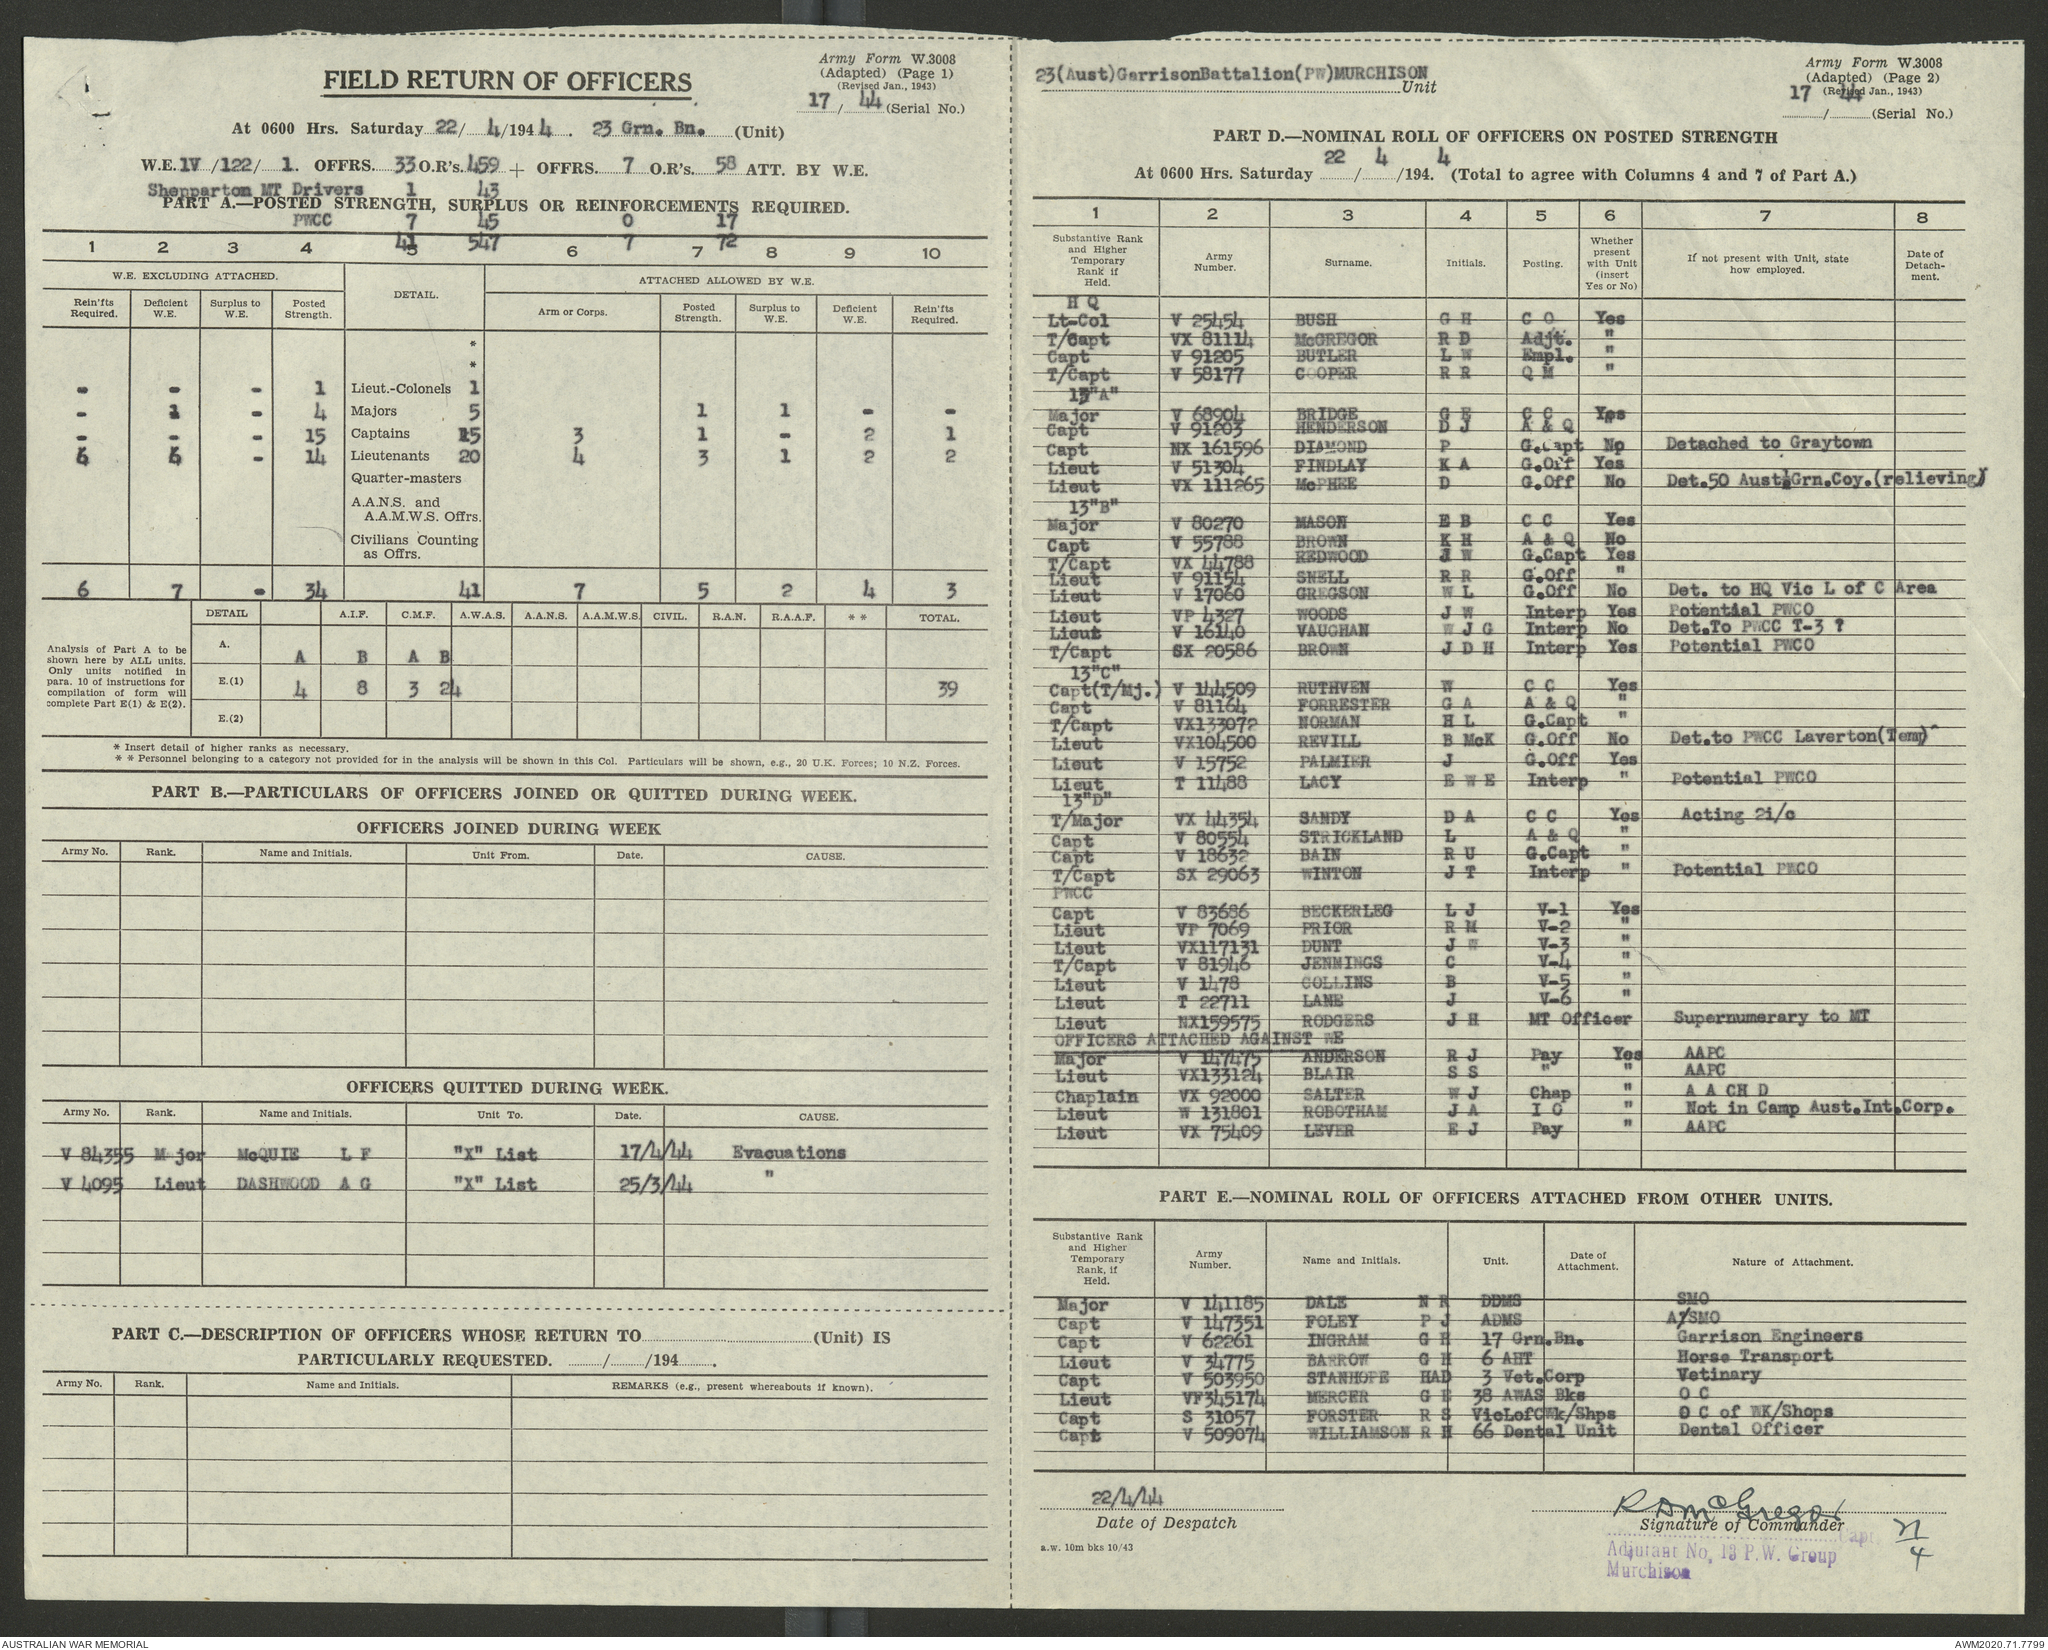 Army Form W.3008
(Adapted) (Page 1)
(Revised Jan., 1943)
17 / 44 (Serial No.)
FIELD RETURN OF OFFICERS
At 0600 Hrs. Saturday 22/ 4/194 4. 23 Grn. Bn. (Unit)
W.E. IV /122/ 1. OFFRS. 33 O.R's. 459 + OFFRS. 7 O.R's. 58 ATT. BY W.E.
Shepparton MT Drivers 1 43
PART A.—POSTED STRENGTH, SURPLUS OR REINFORCEMENTS REQUIRED.
PWCC 7 45 0 17
41 547 7 72
1 2 3 4 5 6 7 8 9 10
W.E. EXCLUDING ATTACHED. DETAIL. ATTACHED ALLOWED BY W.E.
Rein'fts Required. Deficient W.E. Surplus to W.E. Posted Strength. Arm or Corps. Posted Strength. Surplus to W.E. Deficient W.E. Rein'fts Required.
*
*
- - - 1 Lieut.-Colonels 1
- 1 - 4 Majors 5 1 1 - -
- - - 15 Captains 15 3 1 - 2 1
6 6 - 14 Lieutenants 20 4 3 1 2 2
Quarter-masters
A.A.N.S. and
A.A.M.W.S. Offrs.
Civilians Counting
as Offrs.
6 7 - 34 41 7 5 2 4 3
DETAIL A.I.F. C.M.F. A.W.A.S. A.A.N.S. A.A.M.W.S. CIVIL. R.A.N. R.A.A.F. * * TOTAL.
Analysis of Part A to be shown here by ALL units. Only units notified in para. 10 of instructions for compilation of form will complete Part E(1) & E(2).
A. A B A B
E.(1) 4 8 3 24 39
E.(2)
* Insert detail of higher ranks as necessary.
* * Personnel belonging to a category not provided for in the analysis will be shown in this Col. Particulars will be shown, e.g., 20 U.K. Forces; 10 N.Z. Forces.
PART B.—PARTICULARS OF OFFICERS JOINED OR QUITTED DURING WEEK.
OFFICERS JOINED DURING WEEK
Army No. Rank. Name and Initials. Unit From. Date. CAUSE.
OFFICERS QUITTED DURING WEEK.
Army No. Rank. Name and Initials. Unit To. Date. CAUSE.
V 84355 Major McQUIE L F "X" List 17/4/44 Evacuations
V 4095 Lieut DASHWOOD A G "X" List 25/3/44 "
PART C.—DESCRIPTION OF OFFICERS WHOSE RETURN TO (Unit) IS
PARTICULARLY REQUESTED. / /194 .
Army No. Rank. Name and Initials. REMARKS (e.g., present whereabouts if known).
23(Aust)GarrisonBattalion(PW)MURCHISON Unit
Army Form W.3008
(Adapted) (Page 2)
(Revised Jan., 1943)
17 44
/ (Serial No.)
PART D.—NOMINAL ROLL OF OFFICERS ON POSTED STRENGTH
22 4 4
At 0600 Hrs. Saturday / /194. (Total to agree with Columns 4 and 7 of Part A.)
1 2 3 4 5 6 7 8
Substantive Rank and Higher Temporary Rank if Held. Army Number. Surname. Initials. Posting. Whether present with Unit (insert Yes or No) If not present with Unit, state how employed. Date of Detachment.
H Q
Lt-Col V 25454 BUSH G H C O Yes
T/Capt VX 81114 McGREGOR R D Adjt. "
Capt V 91205 BUTLER L W Empl. "
T/Capt V 58177 COOPER R R Q M "
13"A"
Major V 68904 BRIDGE G E C C Yes
Capt V 91203 HENDERSON D J A & Q "
Capt NX 161596 DIAMOND P G.Capt No Detached to Graytown
Lieut V 51304 FINDLAY K A G.Off Yes
Lieut VX 111265 McPHEE D G.Off No Det.50 Aust.Grn.Coy.(relieving)
13"B"
Major V 80270 MASON E B C C Yes
Capt V 55788 BROWN K H A & Q No
T/Capt VX 44788 REDWOOD J W G.Capt Yes
Lieut V 91154 SNELL R R G.Off "
Lieut V 17060 GREGSON W L G.Off No Det. to HQ Vic L of C Area
Lieut VP 4327 WOODS J W Interp Yes Potential PWCO
Lieut V 16140 VAUGHAN W J G Interp No Det.To PWCC T-3 ?
T/Capt SX 20586 BROWN J D H Interp Yes Potential PWCO
13"C"
Capt(T/Mj.) V 144509 RUTHVEN W C C Yes
Capt V 81164 FORRESTER G A A & Q "
T/Capt VX133072 NORMAN H L G.Capt "
Lieut VX104500 REVILL B McK G.Off No Det.to PWCC Laverton(Temp)
Lieut V 15752 PALMIER J G.Off Yes
Lieut T 11488 LACY E W E Interp " Potential PWCO
13"D"
T/Major VX 44354 SANDY D A C C Yes Acting 2i/c
Capt V 80554 STRICKLAND L A & Q "
Capt V 18632 BAIN R U G.Capt "
T/Capt SX 29063 WINTON J T Interp " Potential PWCO
PWCC
Capt V 83686 BECKERLEG L J V-1 Yes
Lieut VP 7069 PRIOR R M V-2 "
Lieut VX117131 DUNT J W V-3 "
T/Capt V 81946 JENNINGS C V-4 "
Lieut V 1478 COLLINS B V-5 "
Lieut T 22711 LANE J V-6 "
Lieut NX159575 RODGERS J H MT Officer Supernumerary to MT
OFFICERS ATTACHED AGAINST WE
Major V 147475 ANDERSON R J Pay Yes AAPC
Lieut VX133124 BLAIR S S " " AAPC
Chaplain VX 92000 SALTER W J Chap " A A CH D
Lieut W 131801 ROBOTHAM J A I O " Not in Camp Aust.Int.Corp.
Lieut VX 75409 LEVER E J Pay " AAPC
PART E.—NOMINAL ROLL OF OFFICERS ATTACHED FROM OTHER UNITS.
Substantive Rank and Higher Temporary Rank, if Held. Army Number. Name and Initials. Unit. Date of Attachment. Nature of Attachment.
Major V 141185 DALE N R DDMS SMO
Capt V 147351 FOLEY P J ADMS A/SMO
Capt V 62261 INGRAM G H 17 Grn.Bn. Garrison Engineers
Lieut V 34775 BARROW G H 6 AHT Horse Transport
Capt V 503950 STANHOPE HAD 3 Vet.Corp Vetinary
Lieut VF345174 MERCER G E 38 AWAS Bks O C
Capt S 31057 FORSTER R S VicLofCWk/Shps O C of WK/Shops
Capt V 509074 WILLIAMSON R H 66 Dental Unit Dental Officer
22/4/44
Date of Despatch
R D McGregor
Signature of Commander
Capt
Adjutant No. 13 P.W. Group
Murchison
a.w. 10m bks 10/43
AUSTRALIAN WAR MEMORIAL
AWM2020.71.7799